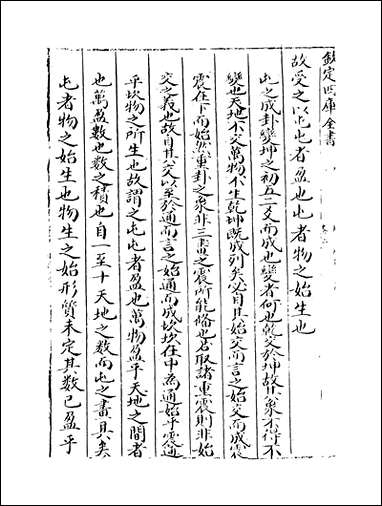 欽定四庫全書
故受之以屯屯者盈也屯者物之始生也
屯之成卦變坤之初五二爻而成也變者何也乾交於坤故其象不得不
變也天地不交萬物不生乾坤既成列矣爻自其始交而言之始交而成震
震在下而始然重卦之象非三畫之震所能備也若取諸重震則非始
交之義也故自其交以至於通而言之始通而成坎坎在中為通始乎震通
乎坎物之所生也故謂之屯屯者盈也萬物盈乎天地之間者
也萬盈數也數之積也自一至十天地之數而屯之畫具矣
屯者物之始生也物生之始形質未定其數已盈乎